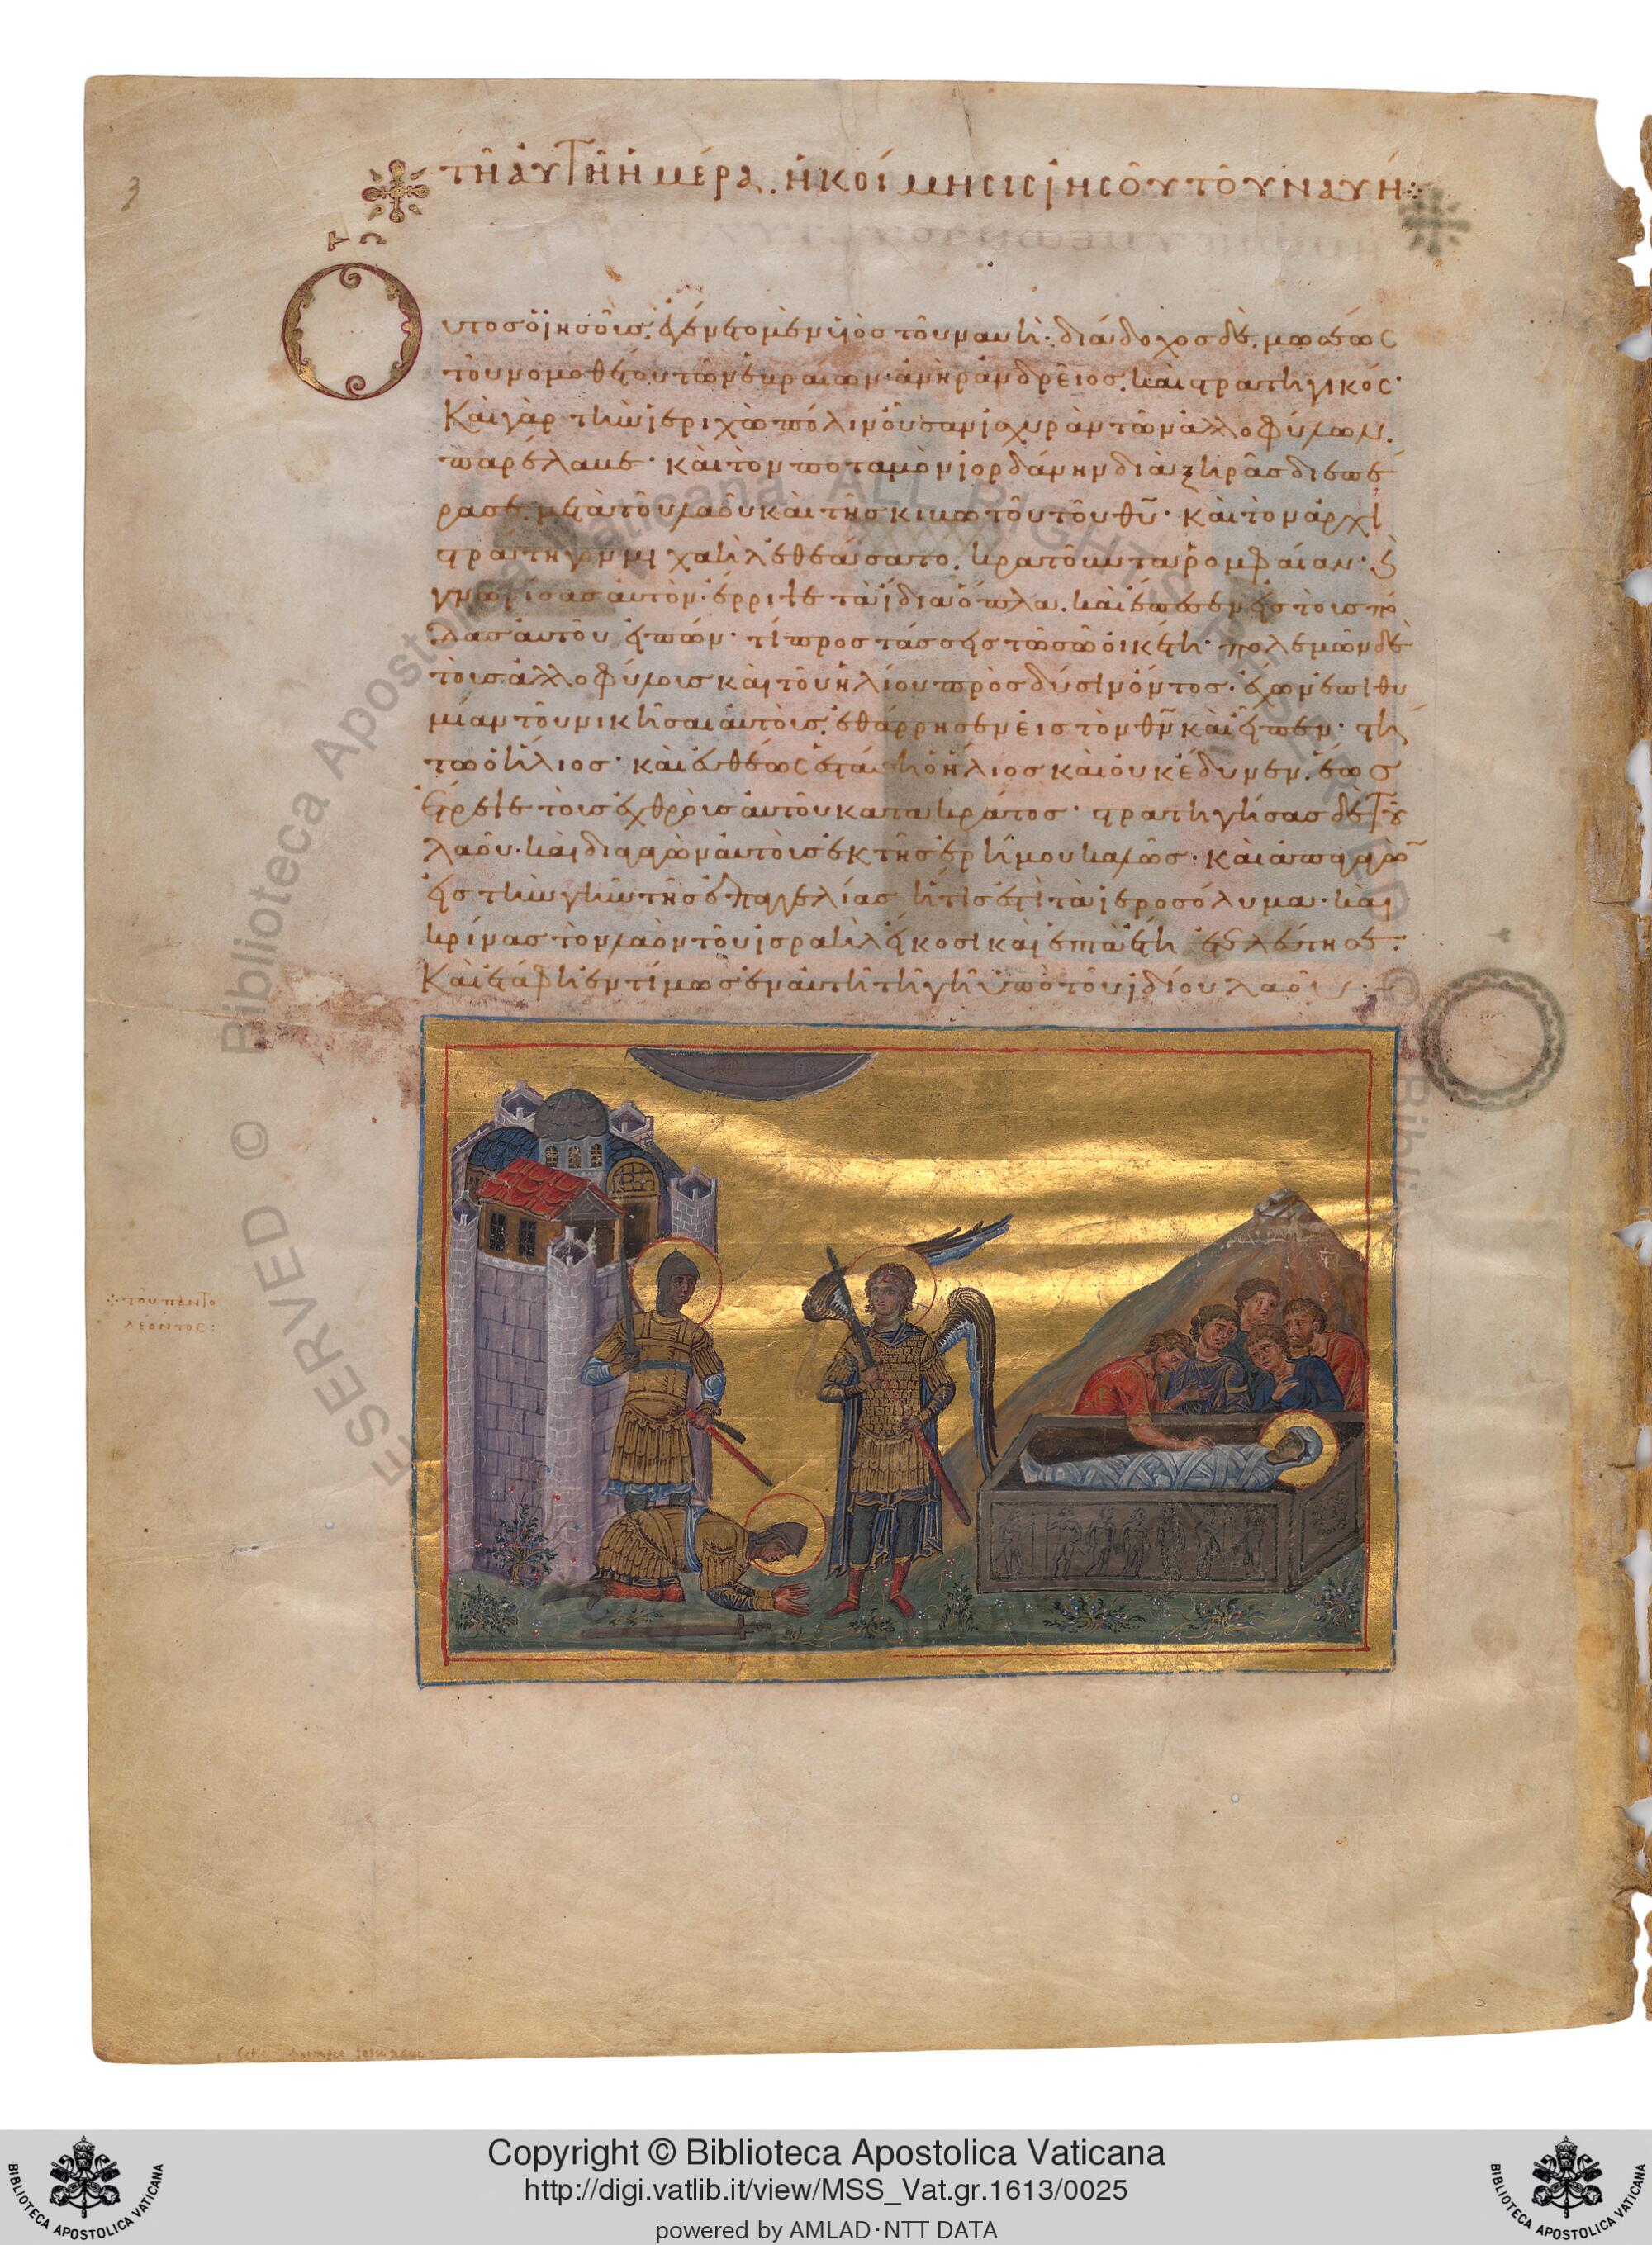 3
τῆ αὐτῆ ἡμέρα. ἡ κοίμησις ἰησοῦ τοῦ ναυή
Οὗτος ὁ ἰησοῦς, ἐγένετο μὲν υἱὸς τοῦ ναυή· διάδοχος δὲ μωσέως
τοῦ νομοθέτου τῶν ἑβραίων· ἀνὴρ ἀνδρεῖος, καὶ στρατηγικός·
Καὶ γὰρ τὴν ἱεριχὼ πόλιν οὖσαν ἰσχυρὰν τῶν ἀλλοφύλων,
παρέλαβε· καὶ τὸν ποταμὸν ἰορδάνην διὰ ξηρᾶς διεπέ
ρασε, μετὰ τοῦ λαοῦ καὶ τῆς κιβωτοῦ τοῦ θυ· καὶ τὸν ἀρχι
στράτηγον μιχαὴλ ἐθεάσατο, κρατοῦντα ῥομφαίαν· ϗ
γνωρίσας αὐτὸν· ἔρριψε τὰ ἴδια ὅπλα, καὶ ἔπεσεν εἰς τοὺς πό
δας αὐτοῦ εἰπών· τί προστάσσεις τῶ σῶ οἰκέτη· πολεμῶν δὲ
τοῖς ἀλλοφύλοις καὶ τοῦ ἡλίου πρὸς δύσιν ὄντος· ἔχων ἐπιθυ
μίαν τοῦ νικῆσαι αὐτοὺς, ἐθάρρησεν εἰς τὸν θν καὶ εἶπεν· στή
τω ὁ ἥλιος· καὶ εὐθέως ἐστάθη ὁ ἥλιος καὶ οὐκ ἔδυνεν, ἕως
ἔτρεψε τοὺς ἐχθροὺς αὐτοῦ κατὰ κράτος· στρατηγήσας δὲ τοῦ
λαοῦ· καὶ διαγαγὼν αὐτοὺς ἐκ τῆς ἐρήμου καλῶς· καὶ ἀπαγαγὼν
εἰς τὴν γῆν τῆς ἐπαγγελίας ἥτις ἐστὶ τὰ ἱεροσόλυμα· καὶ
κρίνας τὸν λαὸν τοῦ ἰσραὴλ εἴκοσι καὶ ἑπτὰ ἔτη ἐτελεύτησε·
Καὶ ἐτάφη ἐντίμως ἐν αὐτῆ τῆ γῆ ὑπὸ τοῦ ἰδίου λαοῦ
τοῦ παντο
λέοντος
Copyright © Biblioteca Apostolica Vaticana
http://digi.vatlib.it/view/MSS_Vat.gr.1613/0025
powered by AMLAD·NTT DATA
BIBLIOTECA APOSTOLICA VATICANA
BIBLIOTECA APOSTOLICA VATICANA